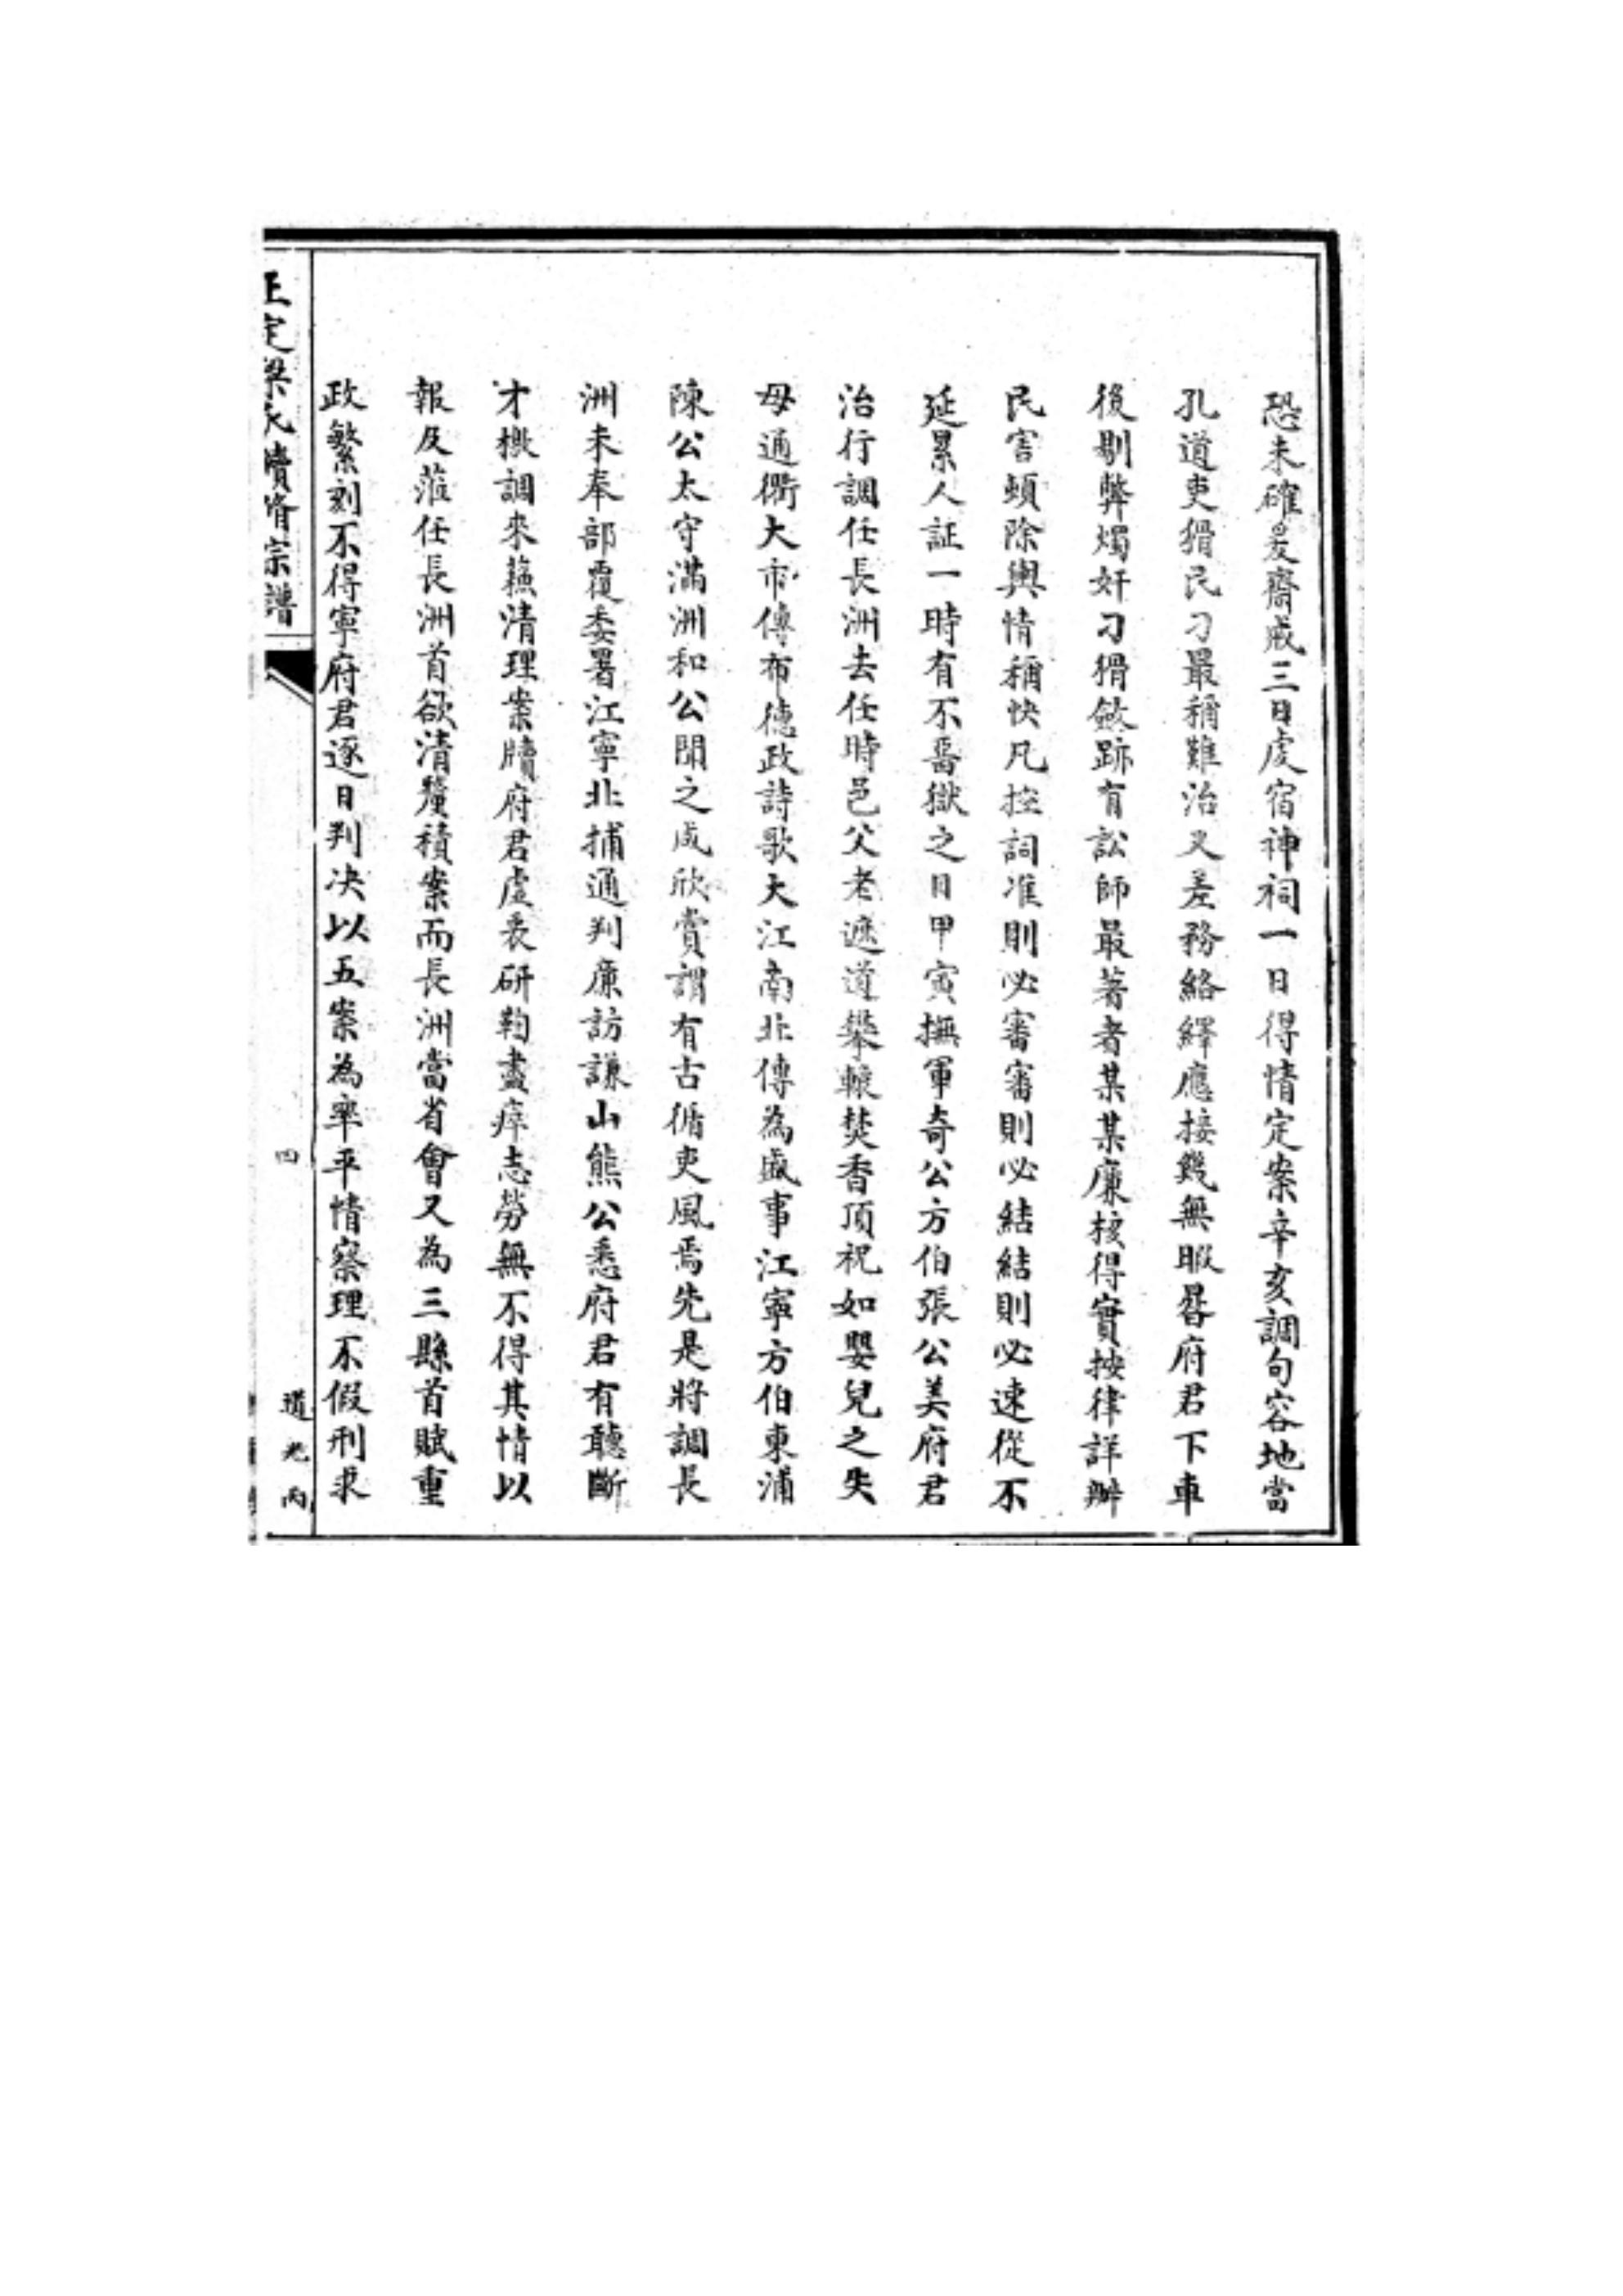 恐未確爰齋戒三日虔宿神祠一日得情定案辛亥調句容地當
孔道吏猾民刁最稱難治又差務絡繹應接幾無暇晷府君下車
後剔弊燭奸刁猾斂跡有訟師最著者某某廉核得實按律詳辦
民害頓除輿情稱快凡控詞准則必審審則必結結則必速從不
延累人証一時有不畱獄之目甲寅撫軍奇公方伯張公美府君
治行調任長洲去任時邑父老遮道攀轅焚香頂祝如嬰兒之失
母通衢大市傳布德政詩歌大江南北傳為盛事江寧方伯東浦
陳公太守滿洲和公聞之咸欣賞謂有古循吏風焉先是將調長
洲未奉部覆委署江寧北捕通判廉訪謙山熊公悉府君有聽斷
才檄調來蘇清理案牘府君虛衷研鞫盡瘁志勞無不得其情以
報及蒞任長洲首欲清釐積案而長洲當省會又為三縣首賦重
政繁刻不得寧府君逐日判决以五案為率平情察理不假刑求
正定梁氏續脩宗譜
四
道光丙